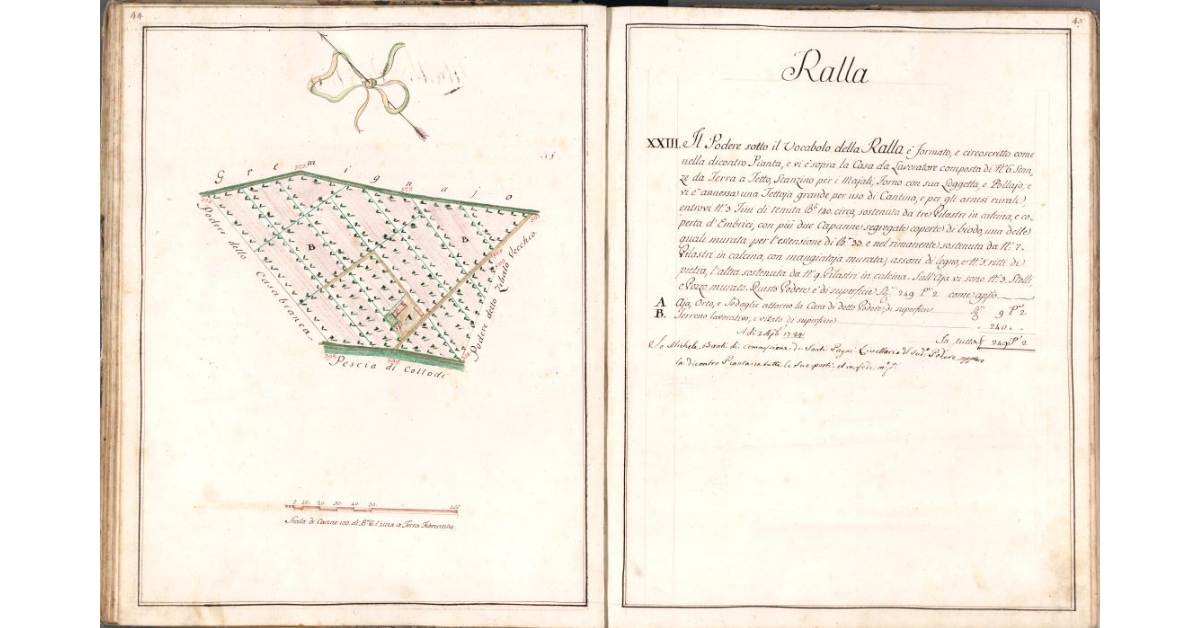 44
Gremignajo
B
B
A
Podere della Casabianca
Podere detto Zibbato Vecchio
Pescia di Collodi
10. 20. 30. 40. 50. 100
Scala di Canne 100. di B.a 6 l'una a Terra Fiorentina
45
Ralla
XXIII. Il Podere sotto il Vocabolo della Ralla è formato, e circoscritto come
nella dicontro Pianta, e vi è sopra la Casa da Lavoratore composta di N.° 6 Stan,
ze da Terra a Tetto, Stanzino per i Majali, Forno con sua Loggetta, e Pollajo, e
vi è annessa una Tettoja grande per uso di Cantina, e per gli arnesi rurali,
entrovi N.° 3 Tini di tenuta B.li 120. circa, sostenuta da tre Pilastri in calcina, e co,
perta d'Embrici, con più due Capanne segregate coperte di biodo, una delle
quali murata per l'estensione di B.a 33. e nel rimanente sostenuta da N.° 7.
Pilastri in calcina, con mangiatoja murata, assoni di legno, e N.° 5. ritti di
pietra, l'altra sostenuta da N.° 9. Pilastri in calcina. Sull'Aja vi sono N.° 3. Stolli,
e Pozzo murato. Questo Podere è di superficie 249 P.i 2 come app.o
A Aja, Orto, e Sodaglie attorno la Casa di detto Podere; di superficie 9 P.i 2
B. Terreno lavorativo, e vitato di superficie 240.
In tutto 249 P.i 2
A di 2 1784
Io Michele Banti di commissione di Santi Pagni Livellario del Sud.° Podere approvo
la dicontro Pianta in tutte le sue parti et in fede m.o p.a